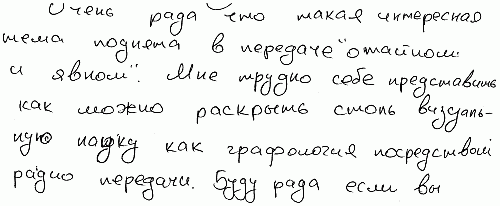 Очень рада что такая интересная
тема поднята в передаче "о тайном
и явном". Мне трудно себе представить
как можно раскрыть столь визуаль-
ную науку как графология посредством
радио передачи. Буду рада если вы